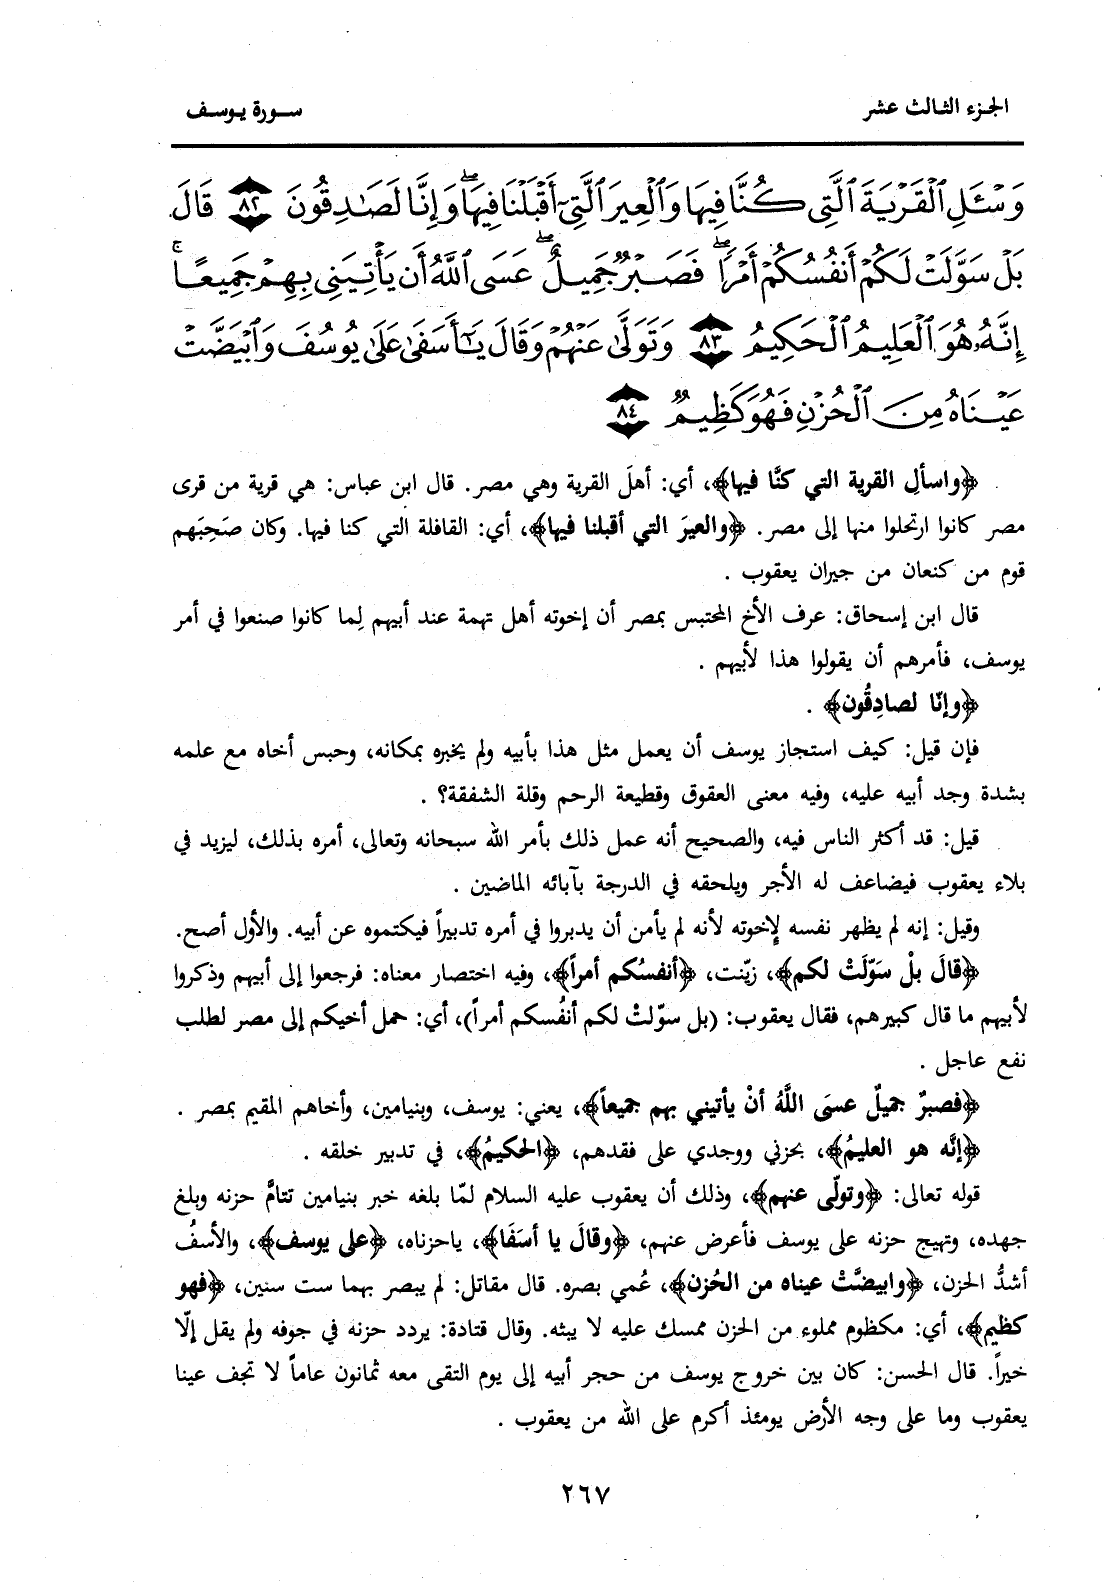 الجزء الثالث عشر
سورة يوسف
وَسْـَٔلِ ٱلْقَرْيَةَ ٱلَّتِى كُنَّا فِيهَا وَٱلْعِيرَ ٱلَّتِىٓ أَقْبَلْنَا فِيهَا ۖ وَإِنَّا لَصَـٰدِقُونَ ٨٢ قَالَ
بَلْ سَوَّلَتْ لَكُمْ أَنفُسُكُمْ أَمْرًا ۖ فَصَبْرٌ جَمِيلٌ ۖ عَسَى ٱللَّهُ أَن يَأْتِيَنِى بِهِمْ جَمِيعًا ۚ
إِنَّهُۥ هُوَ ٱلْعَلِيمُ ٱلْحَكِيمُ ٨٣ وَتَوَلَّىٰ عَنْهُمْ وَقَالَ يَـٰٓأَسَفَىٰ عَلَىٰ يُوسُفَ وَٱبْيَضَّتْ
عَيْنَاهُ مِنَ ٱلْحُزْنِ فَهُوَ كَظِيمٌ ٨٤
﴿واسألِ القرية التي كنَّا فيها﴾، أي: أهلَ القرية وهي مصر. قال ابن عباس: هي قرية من قرى
مصر كانوا ارتحلوا منها إلى مصر. ﴿والعيرَ التي أقبلنا فيها﴾، أي: القافلة التي كنا فيها. وكان صَحِبَهم
قوم من كنعان من جيران يعقوب .
قال ابن إسحاق: عرف الأخ المحتبس بمصر أن إخوته أهل تهمة عند أبيهم لِما كانوا صنعوا في أمر
يوسف، فأمرهم أن يقولوا هذا لأبيهم .
﴿وإنّا لصادِقُون﴾ .
فإن قيل: كيف استجاز يوسف أن يعمل مثل هذا بأبيه ولم يخبره بمكانه، وحبس أخاه مع علمه
بشدة وجد أبيه عليه، وفيه معنى العقوق وقطيعة الرحم وقلة الشفقة؟ .
قيل: قد أكثر الناس فيه، والصحيح أنه عمل ذلك بأمر الله سبحانه وتعالى، أمره بذلك، ليزيد في
بلاء يعقوب فيضاعف له الأجر ويلحقه في الدرجة بآبائه الماضين .
وقيل: إنه لم يظهر نفسه لإخوته لأنه لم يأمن أن يدبروا في أمره تدبيراً فيكتموه عن أبيه. والأول أصح.
﴿قالَ بلْ سَوّلَتْ لكم﴾، زيّنت، ﴿أنفسُكم أمراً﴾، وفيه اختصار معناه: فرجعوا إلى أبيهم وذكروا
لأبيهم ما قال كبيرهم، فقال يعقوب: (بل سوّلتْ لكم أنفُسكم أمراً)، أي: حمل أخيكم إلى مصر لطلب
نفع عاجل .
﴿فصبرٌ جميلٌ عسَى اللَّهُ أنْ يأتيني بهم جميعاً﴾، يعني: يوسف، وبنيامين، وأخاهم المقيم بمصر .
﴿إنَّه هو العليمُ﴾، بحزني ووجدي على فقدهم، ﴿الحكيمُ﴾، في تدبير خلقه .
قوله تعالى: ﴿وتولّى عنهم﴾، وذلك أن يعقوب عليه السلام لمّا بلغه خبر بنيامين تتامَّ حزنه وبلغ
جهده، وتهيج حزنه على يوسف فأعرض عنهم، ﴿وقالَ يا أسَفَا﴾، ياحزناه، ﴿على يوسف﴾، والأسفُ
أشدُّ الحزن، ﴿وابيضَّتْ عيناه من الحُزن﴾، عُمي بصره. قال مقاتل: لم يبصر بهما ست سنين، ﴿فهو
كظيم﴾، أي: مكظوم مملوء من الحزن ممسك عليه لا يبثه. وقال قتادة: يردد حزنه في جوفه ولم يقل إلّا
خيراً. قال الحسن: كان بين خروج يوسف من حجر أبيه إلى يوم التقى معه ثمانون عاماً لا تجف عينا
يعقوب وما على وجه الأرض يومئذ أكرم على الله من يعقوب .
٢٦٧